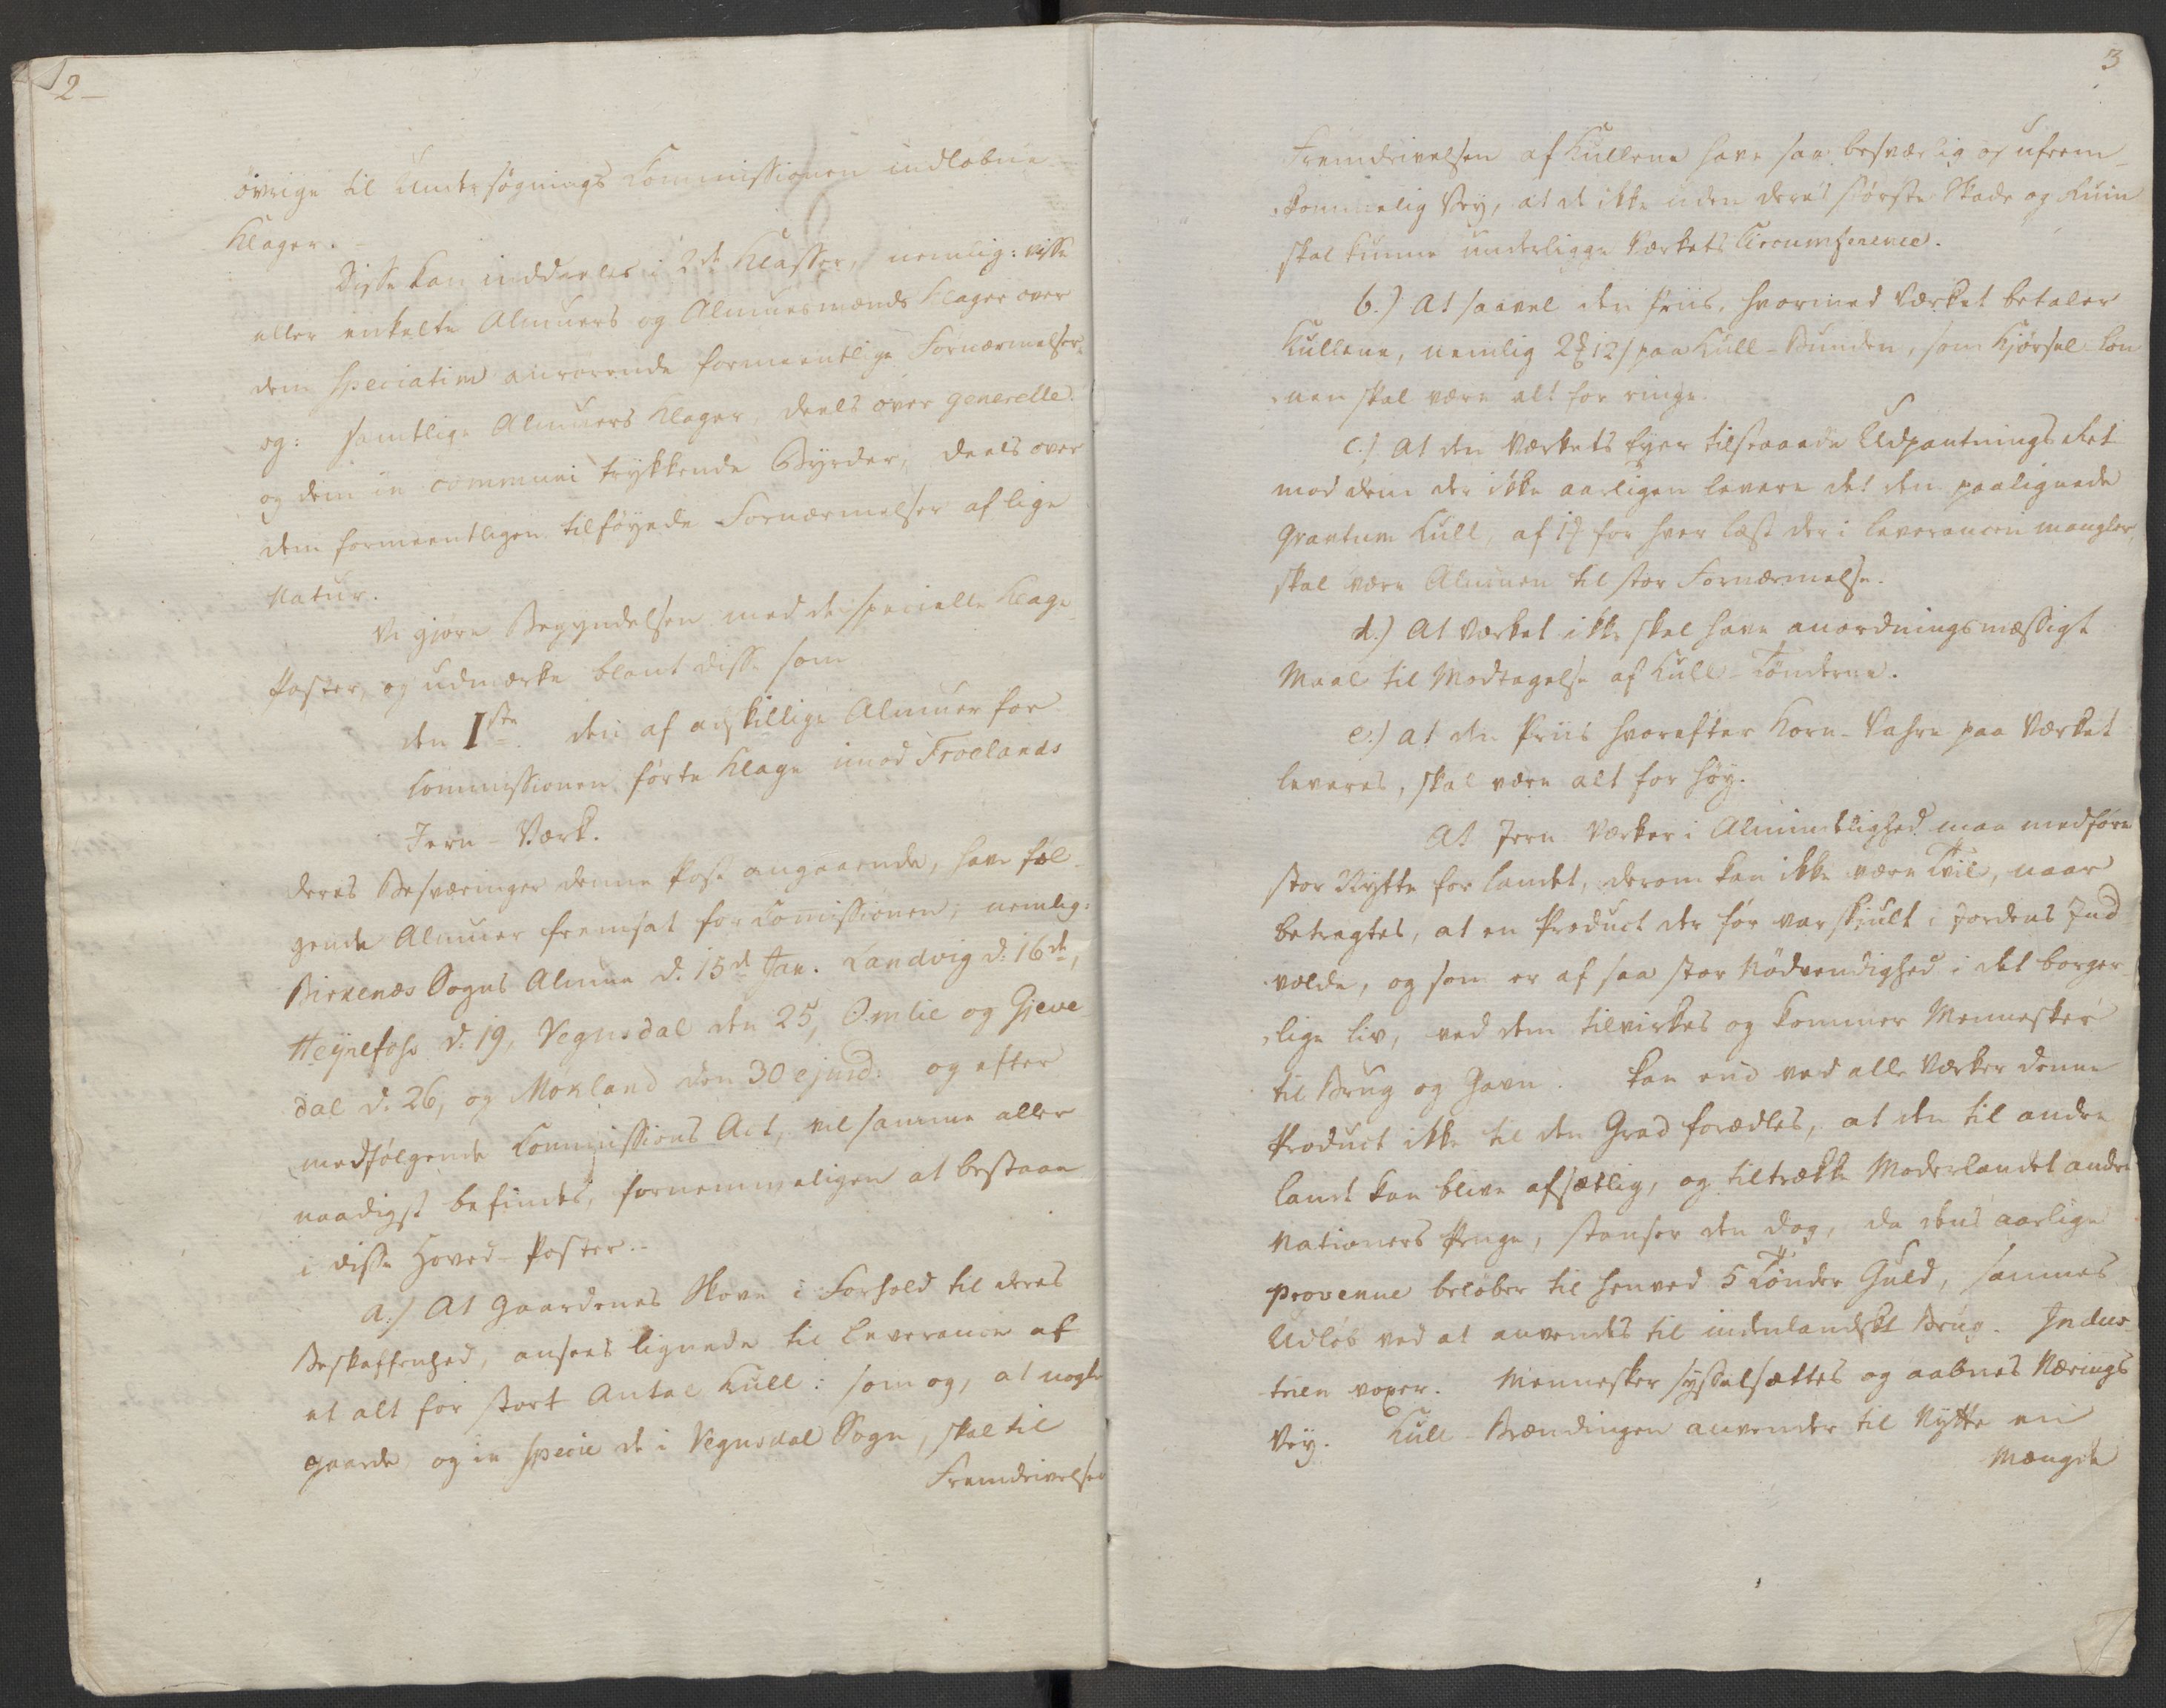 2
övrige til Undersøgnings Commissionen indløbne
Klager.
Disse kan inddeeles i 2de Klasser, nemlig: visse
eller enkelte Almuers og Almuesmænds Klager over
dem speciatim anrørende formeentlige Fornærmelser,
og: samtlige Almuers Klager, deels over generelle
og dem in communi trykkende Byrder, deels over
dem formeentligen tilføyede Fornærmelser af lige
Natur.
Vi gjøre Begyndelsen med de specielle Klage
Poster, og udmærke blant disse som
den Iste. den af adskillige Almuer for
Commissionen førte Klage imod Froelands
Jern-Værk.
Deres Besværinger denne Post angaaende, have føl-
gende Almuer fremsat for Comissionen; nemlig:
Birkenæs Sogns Almue d. 15d Jan. Landvig d: 16de,
Heyrefoss d. 19, Vegusdal den 25, Omlie og Gjeve
dal d. 26, og Mokland den 30 ejusd: og efter
medfølgende Commissions Act, vil samme aller
naadigst befindes, fornemmeligen at bestaae
i disse Hoved-Poster.
a.) At Gaardenes Skove i Forhold til deres
Beskaffenhed, ansees lignede til Leverance af
et alt for stort Antal Kull: som og, at nogle
Gaarde, og in specie de i Vegusdal Sogn, skal til
Fremdrivelsen
3
Fremdrivelsen af Kullene have saa besværlig og ufrem-
kommelig Vey, at de ikke uden deres største Skade og Ruin
skal kunne underligge Værkets Circumference.
b.) At saavel den Priis, hvormed Værket betaler
Kullene, nemlig 2 12 s paa Kull-Bunden, som Kjørsel-Løn
nen skal være alt for ringe.
c.) At den Værkets Eyer tilstaaede Udpantnings Ret
mod dem der ikke aarligen levere det dem paalignede
Qvantum Kull, af 1 for hver Læst der i Leverancen mangler,
skal være Almuen til stor Fornærmelse.
d.) At Værket ikke skal have anordningsmæssigt
Maal til Modtagelse af Kull-Tønderne.
e.) At den Priis hvorefter Korn-Vahre paa Værket
leveres, skal være alt for høy.
At Jern Værker i Almindelighed maa medføre
stor Nytte for Landet, derom kan ikke være Tvil, naar
betragtes, at en Product der før var skiult i Jordens Ind
volde, og som er af saa stor Nødvendighed i det borger-
lige Liv, ved dem tilvirkes og kommer Mennesker
til Brug og Gavn. Kan end ved alle Værker denne
Product ikke til den Grad forædles, at den til andre
Lande kan blive afsætlig, og tiltrække Moderlandet andre
Nationers Penge, stanser den dog, da dens aarlige
provenue beløber til henved 5 Tønder Guld, sammes
Udløb ved at anvendes til indenlandskt Brug. Indus-
trien voxer. Mennesker sysselsættes og aabnes Nærings
Vey. Kull-Brændingen anvender til Nytte en
Mængde